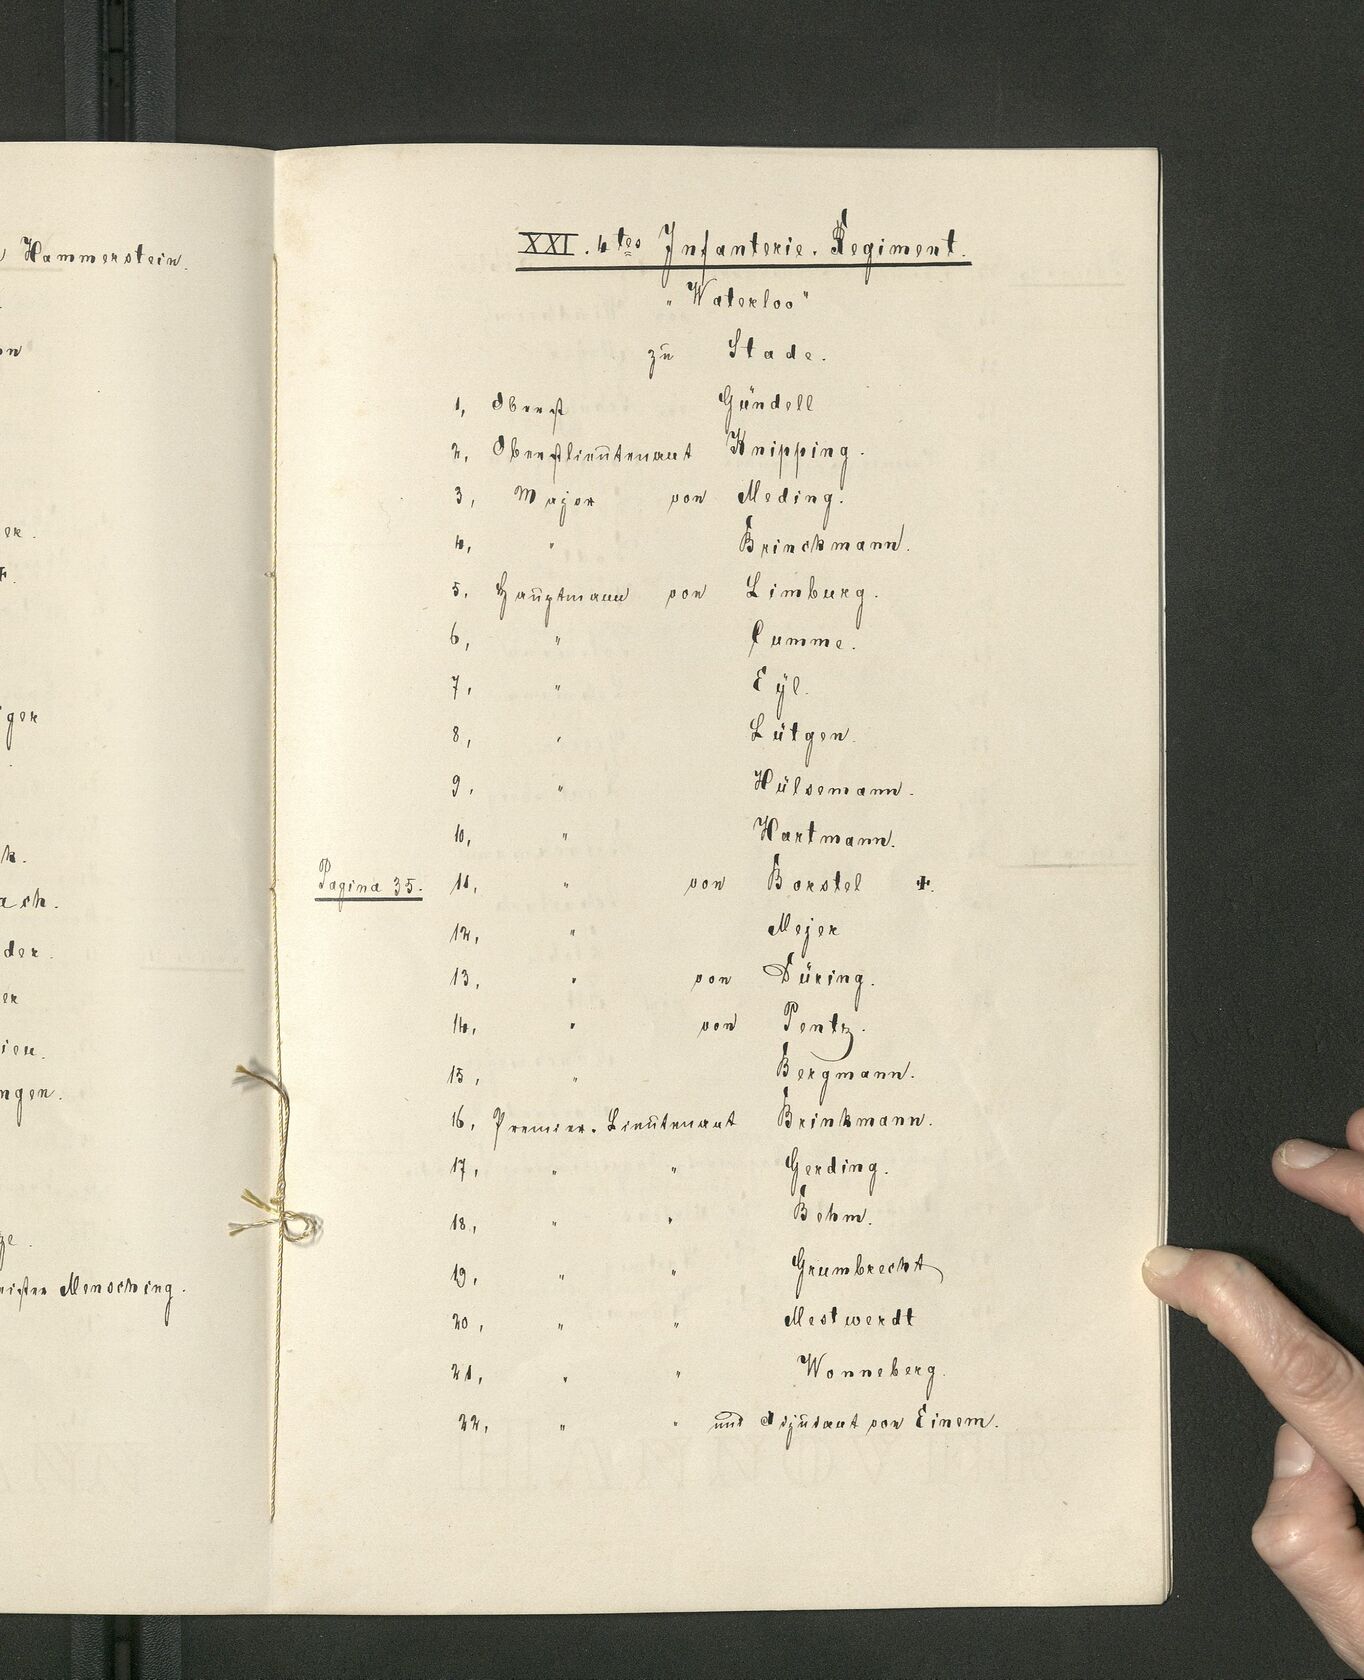 Hammerstein.
er.
ger
k.
ach.
der.
er
ien.
ngen.
ze.
Mensching.
XXI. 4tes Infanterie. Regiment.
"Waterloo"
zu Stade.
1, Oberst Gündell
2, Oberstlieutenant Knipping.
3, Major von Meding.
4, " Brinckmann.
5. Hauptmann von Limburg.
6, " Cumme.
7, " Eÿl.
8, " Lütgen.
9, " Hülsemann.
10, " Hartmann.
Pagina 35. 11, " von Borstel ✝.
12, " Mejer
13, " von Düring.
14, " von Pentz.
15, " Bergmann.
16, Premier-Lieutenant Brinkmann.
17, " " Gerding.
18, " " Behm.
19, " " Grumbrecht
20, " " Mestwerdt
21, " " Wonneberg.
22, " " und Adjutant von Einem.